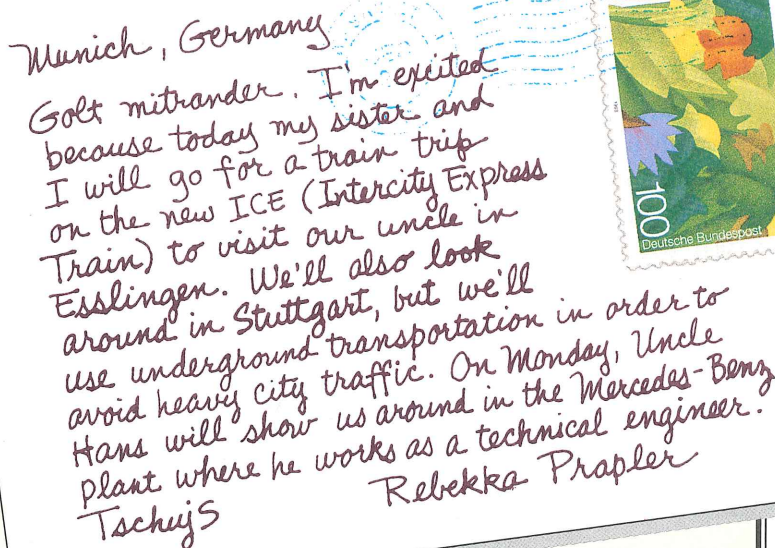 Munich, Germany
Golt mitrander. I'm excited
because today my sister and
I will go for a train trip
on the new ICE (Intercity Express
Train) to visit our uncle in
Esslingen. We'll also look
around in Stuttgart, but we'll
use underground transportation in order to
avoid heavy city traffic. On Monday, Uncle
Hans will show us around in the Mercedes-Benz
plant where he works as a technical engineer.
Tschujs
Rebekka Prapler
100
Deutsche Bundespost